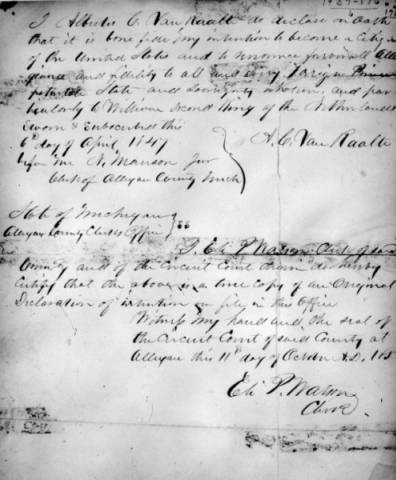 I Albertus C. Van Raalte do declare on oath
that it is bona fide my intention to become a citizen
of the United States and to renounce forever all alle
giance and fidelity to all and any foreign Prince
State and Sovereignty whatever, and par
ticularly to William Second King of the Netherlands
Sworn & Subscribed this
6th day of April 1847
A. C. Van Raalte
before me N. Manson Jur
Clerk of Allegan County Mich
State of Michigan
Allegan County Clerks Office ss
I, Eli P. Watson, Clerk of said
County and of the Circuit Court thereof do hereby
certify that the above is a true copy of an Original
Declaration of intention on file in this Office
Witness my hand and the seal of
the Circuit Court of said County at
Allegan this 11th day of October A.D. 185
Eli P. Watson
Clerk